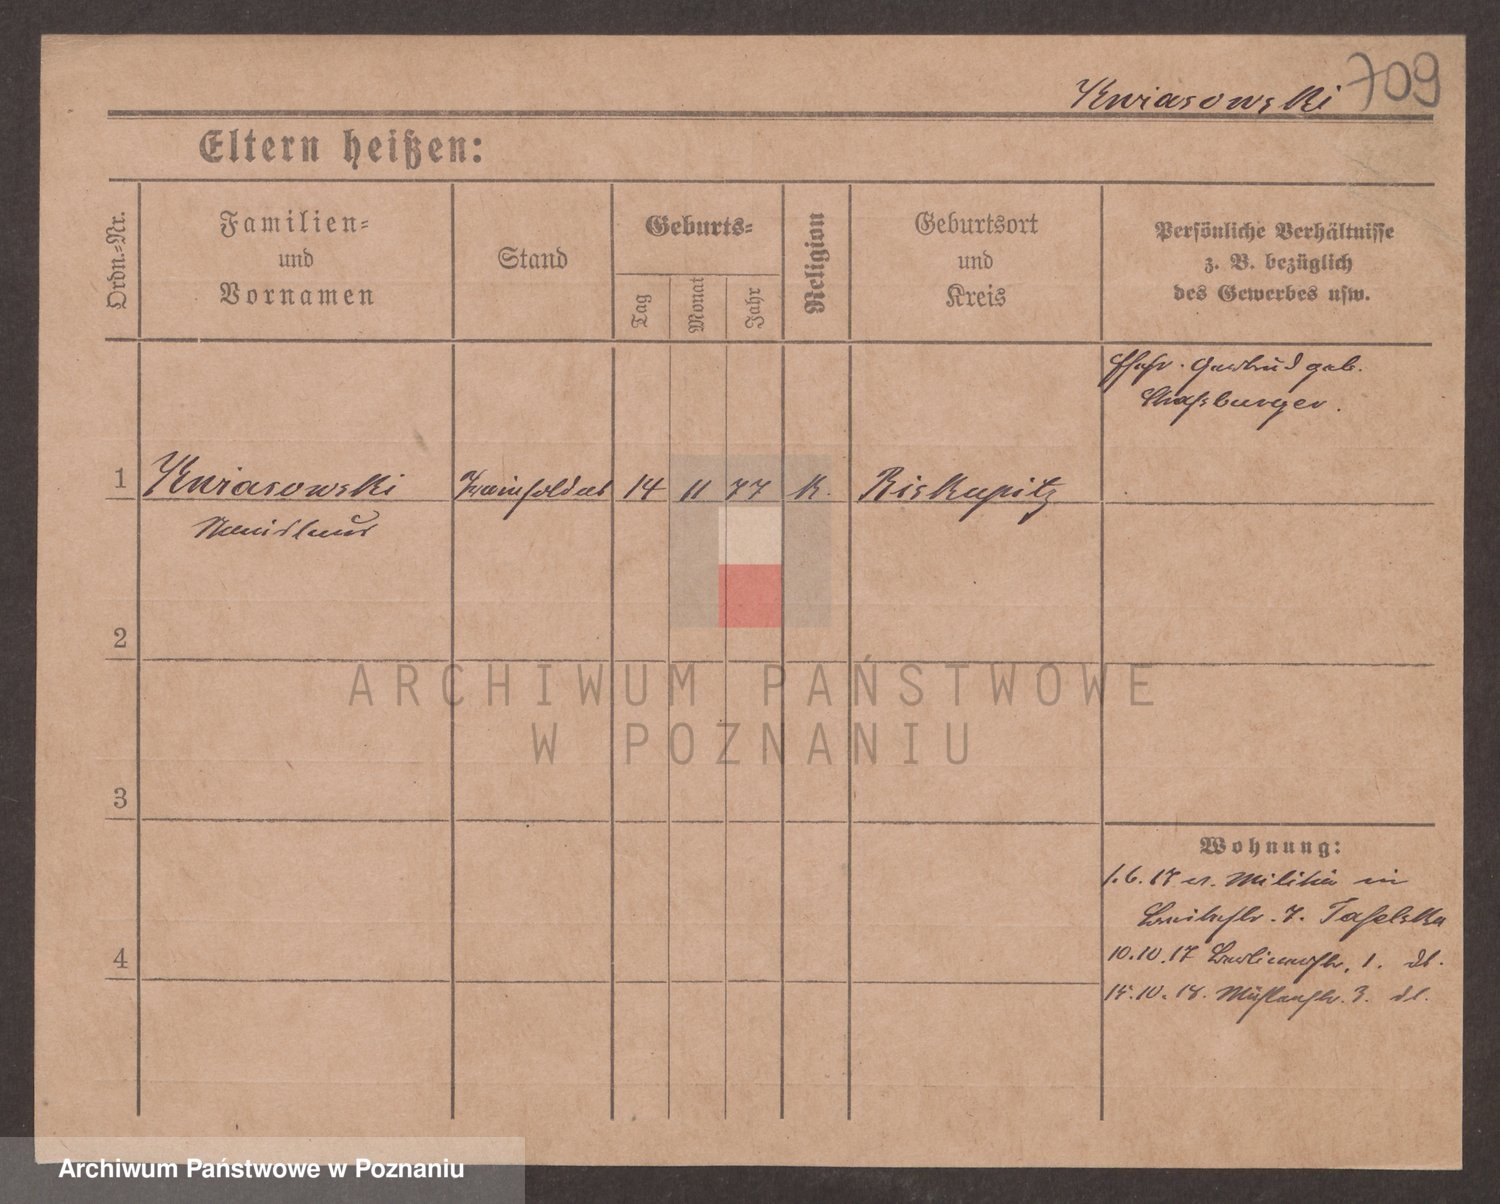 Kwiasowski 709
Eltern heißen:
Ordn.-Nr.
Familien-
und
Vornamen
Stand
Geburts-
Tag
Monat
Jahr
Religion
Geburtsort
und
Kreis
Persönliche Verhältnisse
z. B. bezüglich
des Gewerbes usw.
Ehefr. Gertrud geb.
Straßburger.
1 Kwiasowski 14 11 77 K. Biskupitz
2
3
Wohnung:
1.6.17 v. Militär in
7.
4
10.10.17 Berlinerstr. 1. dl.
15.10.18. Mühlenstr. 3. dl.
ARCHIWUM PAŃSTWOWE
W POZNANIU
Archiwum Państwowe w Poznaniu